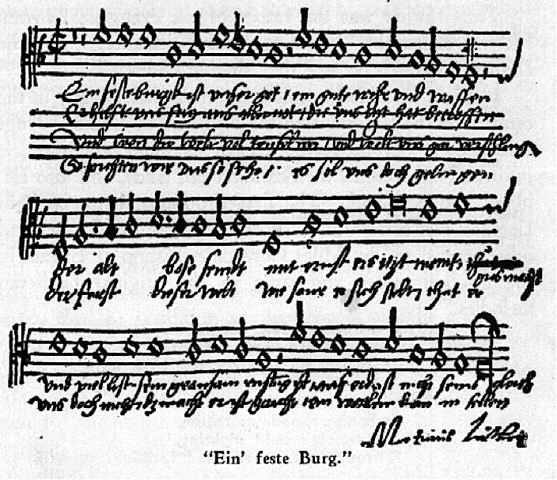 Ein feste burg ist unser got / ein gute wehr und waffen
Er hilfft uns frey aus aller not / die uns itzt hat betroffen
Und wen die welt vol teuffel wer / und wolt uns gar verschlingen
So furchten wir uns nicht so sehr / es sol uns doch gelingen
Der alt bose feindt mit ernst ers itzt meint gros macht
der furst dieser welt wie saur er sich stellet thut er
und viel list sein grausam rustung ist auf erd ist nicht seins gleich
uns doch nicht das macht er ist gericht ein wortlein kan in fellen
Martinus Luther
"Ein' feste Burg."